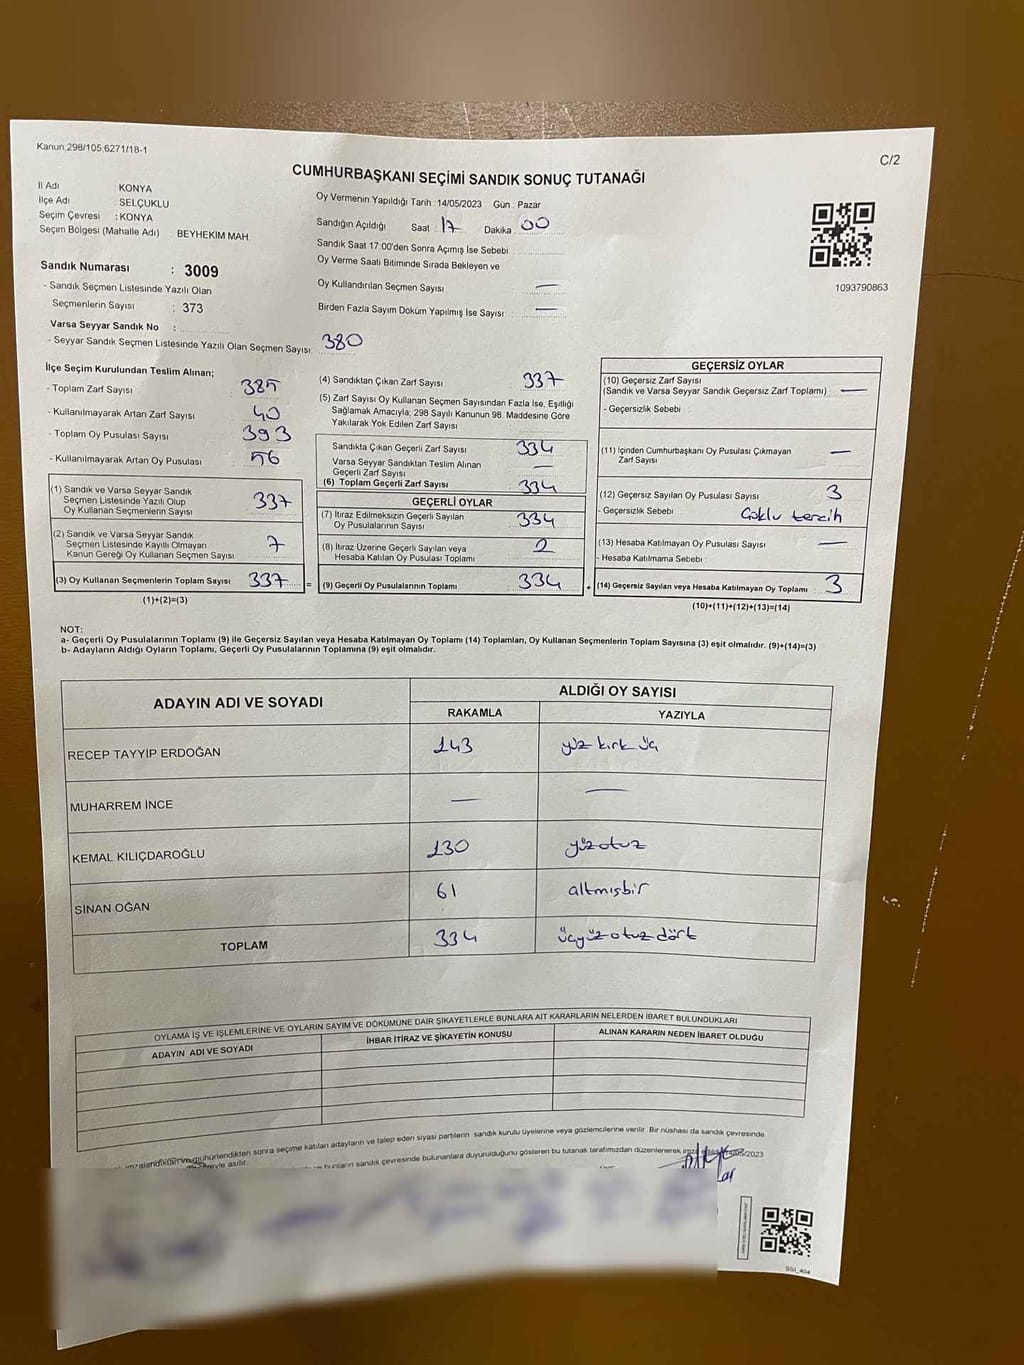 Kanun:298/105 6271/18-1
C/2
CUMHURBAŞKANI SEÇİMİ SANDIK SONUÇ TUTANAĞI
İl Adı : KONYA
İlçe Adı : SELÇUKLU
Seçim Çevresi : KONYA
Seçim Bölgesi (Mahalle Adı) : BEYHEKİM MAH
Sandık Numarası : 3009
- Sandık Seçmen Listesinde Yazılı Olan
Seçmenlerin Sayısı : 373
Varsa Seyyar Sandık No :
- Seyyar Sandık Seçmen Listesinde Yazılı Olan Seçmen Sayısı: 380
Oy Vermenin Yapıldığı Tarih : 14/05/2023 Gün : Pazar
Sandığın Açıldığı Saat : 17 Dakika : 00
Sandık Saat 17:00'den Sonra Açımış İse Sebebi :
Oy Verme Saati Bitiminde Sırada Bekleyen ve
Oy Kullandırılan Seçmen Sayısı : —
Birden Fazla Sayım Döküm Yapılmış İse Sayısı : —
1093790863
İlçe Seçim Kurulundan Teslim Alınan;
- Toplam Zarf Sayısı 385
- Kullanılmayarak Artan Zarf Sayısı 40
- Toplam Oy Pusulası Sayısı 393
- Kullanılmayarak Artan Oy Pusulası 56
(1) Sandık ve Varsa Seyyar Sandık
Seçmen Listesinde Yazılı Olup
Oy Kullanan Seçmenlerin Sayısı 337
(2) Sandık ve Varsa Seyyar Sandık
Seçmen Listesinde Kayıtlı Olmayan
Kanun Gereği Oy Kullanan Seçmen Sayısı 7
(3) Oy Kullanan Seçmenlerin Toplam Sayısı 337 =
(1)+(2)=(3)
(4) Sandıktan Çıkan Zarf Sayısı 337
(5) Zarf Sayısı Oy Kullanan Seçmen Sayısından Fazla İse, Eşitliği
Sağlamak Amacıyla; 298 Sayılı Kanunun 98. Maddesine Göre
Yakılarak Yok Edilen Zarf Sayısı
Sandıkta Çıkan Geçerli Zarf Sayısı 334
Varsa Seyyar Sandıktan Teslim Alınan
Geçerli Zarf Sayısı —
(6) Toplam Geçerli Zarf Sayısı 334
GEÇERLİ OYLAR
(7) İtiraz Edilmeksizin Geçerli Sayılan
Oy Pusulalarının Sayısı 334
(8) İtiraz Üzerine Geçerli Sayılan veya
Hesaba Katılan Oy Pusulası Toplamı
(9) Geçerli Oy Pusulalarının Toplamı 334 +
GEÇERSİZ OYLAR
(10) Geçersiz Zarf Sayısı
(Sandık ve Varsa Seyyar Sandık Geçersiz Zarf Toplamı) : —
- Geçersizlik Sebebi :
(11) İçinden Cumhurbaşkanı Oy Pusulası Çıkmayan
Zarf Sayısı —
(12) Geçersiz Sayılan Oy Pusulası Sayısı 3
- Geçersizlik Sebebi : Çoklu tercih
(13) Hesaba Katılmayan Oy Pusulası Sayısı —
- Hesaba Katılmama Sebebi :
(14) Geçersiz Sayılan veya Hesaba Katılmayan Oy Toplamı : 3
(10)+(11)+(12)+(13)=(14)
NOT:
a- Geçerli Oy Pusulalarının Toplamı (9) ile Geçersiz Sayılan veya Hesaba Katılmayan Oy Toplamı (14) Toplamları, Oy Kullanan Seçmenlerin Toplam Sayısına (3) eşit olmalıdır. (9)+(14)=(3)
b- Adayların Aldığı Oyların Toplamı, Geçerli Oy Pusulalarının Toplamına (9) eşit olmalıdır.
ADAYIN ADI VE SOYADI
ALDIĞI OY SAYISI
RAKAMLA YAZIYLA
RECEP TAYYİP ERDOĞAN 143 yüz kırk üç
MUHARREM İNCE — —
KEMAL KILIÇDAROĞLU 130 yüzotuz
SİNAN OĞAN 61 altmışbir
TOPLAM 334 üçyüz otuz dört
OYLAMA İŞ VE İŞLEMLERİNE VE OYLARIN SAYIM VE DÖKÜMÜNE DAİR ŞİKAYETLERLE BUNLARA AİT KARARLARIN NELERDEN İBARET BULUNDUKLARI
ADAYIN ADI VE SOYADI
İHBAR İTİRAZ VE ŞİKAYETİN KONUSU
ALINAN KARARIN NEDEN İBARET OLDUĞU
mühürlendikten sonra seçime katılan adayların ve talep eden siyasi partilerin sandık kurulu üyelerine veya gözlemcilerine verilir. Bir nüshası da sandık çevresinde
asılır.
bunların sandık çevresinde bulunanlara duyurulduğunu gösteren bu tutanak tarafımızdan düzenlenerek